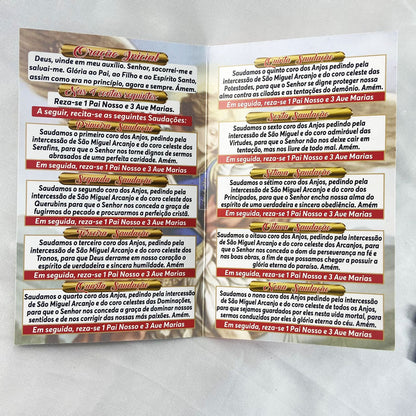 Oração Inicial
Deus, vinde em meu auxílio. Senhor, socorrei-me e
salvai-me. Glória ao Pai, ao Filho e ao Espírito Santo,
assim como era no princípio, agora e sempre. Ámem.
Nas 4 contas seguintes
Reza-se 1 Pai Nosso e 3 Ave Marias.
A seguir, recita-se as seguintes Saudações:
Primeira Saudação
Saudamos o primeiro coro dos Anjos, pedindo pela
intercessão de São Miguel Arcanjo e do coro celeste dos
Serafins, para que o Senhor nos torne dignos de sermos
abrasados de uma perfeita caridade. Amém.
Em seguida, reza-se 1 Pai Nosso e 3 Ave Marias
Segunda Saudação
Saudamos o segundo coro dos Anjos, pedindo pela
intercessão de São Miguel Arcanjo e do coro celeste dos
Querubins para que o Senhor nos conceda a graça de
fugirmos do pecado e procurarmos a perfeição cristã.
Em seguida, reza-se 1 Pai Nosso e 3 Ave Marias
Terceira Saudação
Saudamos o terceiro coro dos Anjos, pedindo pela
intercessão de São Miguel Arcanjo e do coro celeste dos
Tronos, para que Deus derrame em nosso coração
espírito de verdadeira e sincera humildade. Amém.
Em seguida, reza-se 1 Pai Nosso e 3 Ave Marias
Quarta Saudação
Saudamos o quarto coro dos Anjos pedindo pela intercessão
de São Miguel Arcanjo e do coro celeste das Dominações,
para que o Senhor nos conceda a graça de dominar nossos
sentidos e de nos corrigir das nossas más paixões. Amém.
Em seguida, reza-se 1 Pai Nosso e 3 Ave Marias
Quinta Saudação
Saudamos o quinto coro dos Anjos pedindo pela
intercessão de São Miguel Arcanjo e do coro celeste das
Potestades, para que o Senhor se digne proteger nossa
alma contra as ciladas e as tentações do demônio. Amém.
Em seguida, reza-se 1 Pai Nosso e 3 Ave Marias
Sexta Saudação
Saudamos o sexto coro dos Anjos, pedindo pela intercessão
de São Miguel Arcanjo e do coro admirável das
Virtudes, para que o Senhor não nos deixe cair em
tentação, mas nos livre de todo mal. Amém.
Em seguida, reza-se 1 Pai Nosso e 3 Ave Marias
Sétima Saudação
Saudamos o sétimo coro dos Anjos, pedindo pela
intercessão de São Miguel Arcanjo e do coro dos
Principados, para que o Senhor encha nossa alma do
espírito de uma verdadeira e sincera obediência. Amém.
Em seguida, reza-se 1 Pai Nosso e 3 Ave Marias
Oitava Saudação
Saudamos o oitavo coro dos Anjos pedindo pela intercessão
de São Miguel Arcanjo e do coro celeste dos Arcanjos, para
que o Senhor nos conceda o dom da perseverança na fé e
nas boas obras, a fim de que possamos chegar a possuir a
glória eterna do paraíso. Amém.
Em seguida, reza-se 1 Pai Nosso e 3 Ave Marias
Nona Saudação
Saudamos o nono coro dos Anjos pedindo pela intercessão
de São Miguel Arcanjo e do coro celeste de todos os Anjos,
para que sejamos guardados por eles nesta vida mortal, para
sermos conduzidos por eles à glória eterna do céu. Amém.
Em seguida, reza-se 1 Pai Nosso e 3 Ave Marias